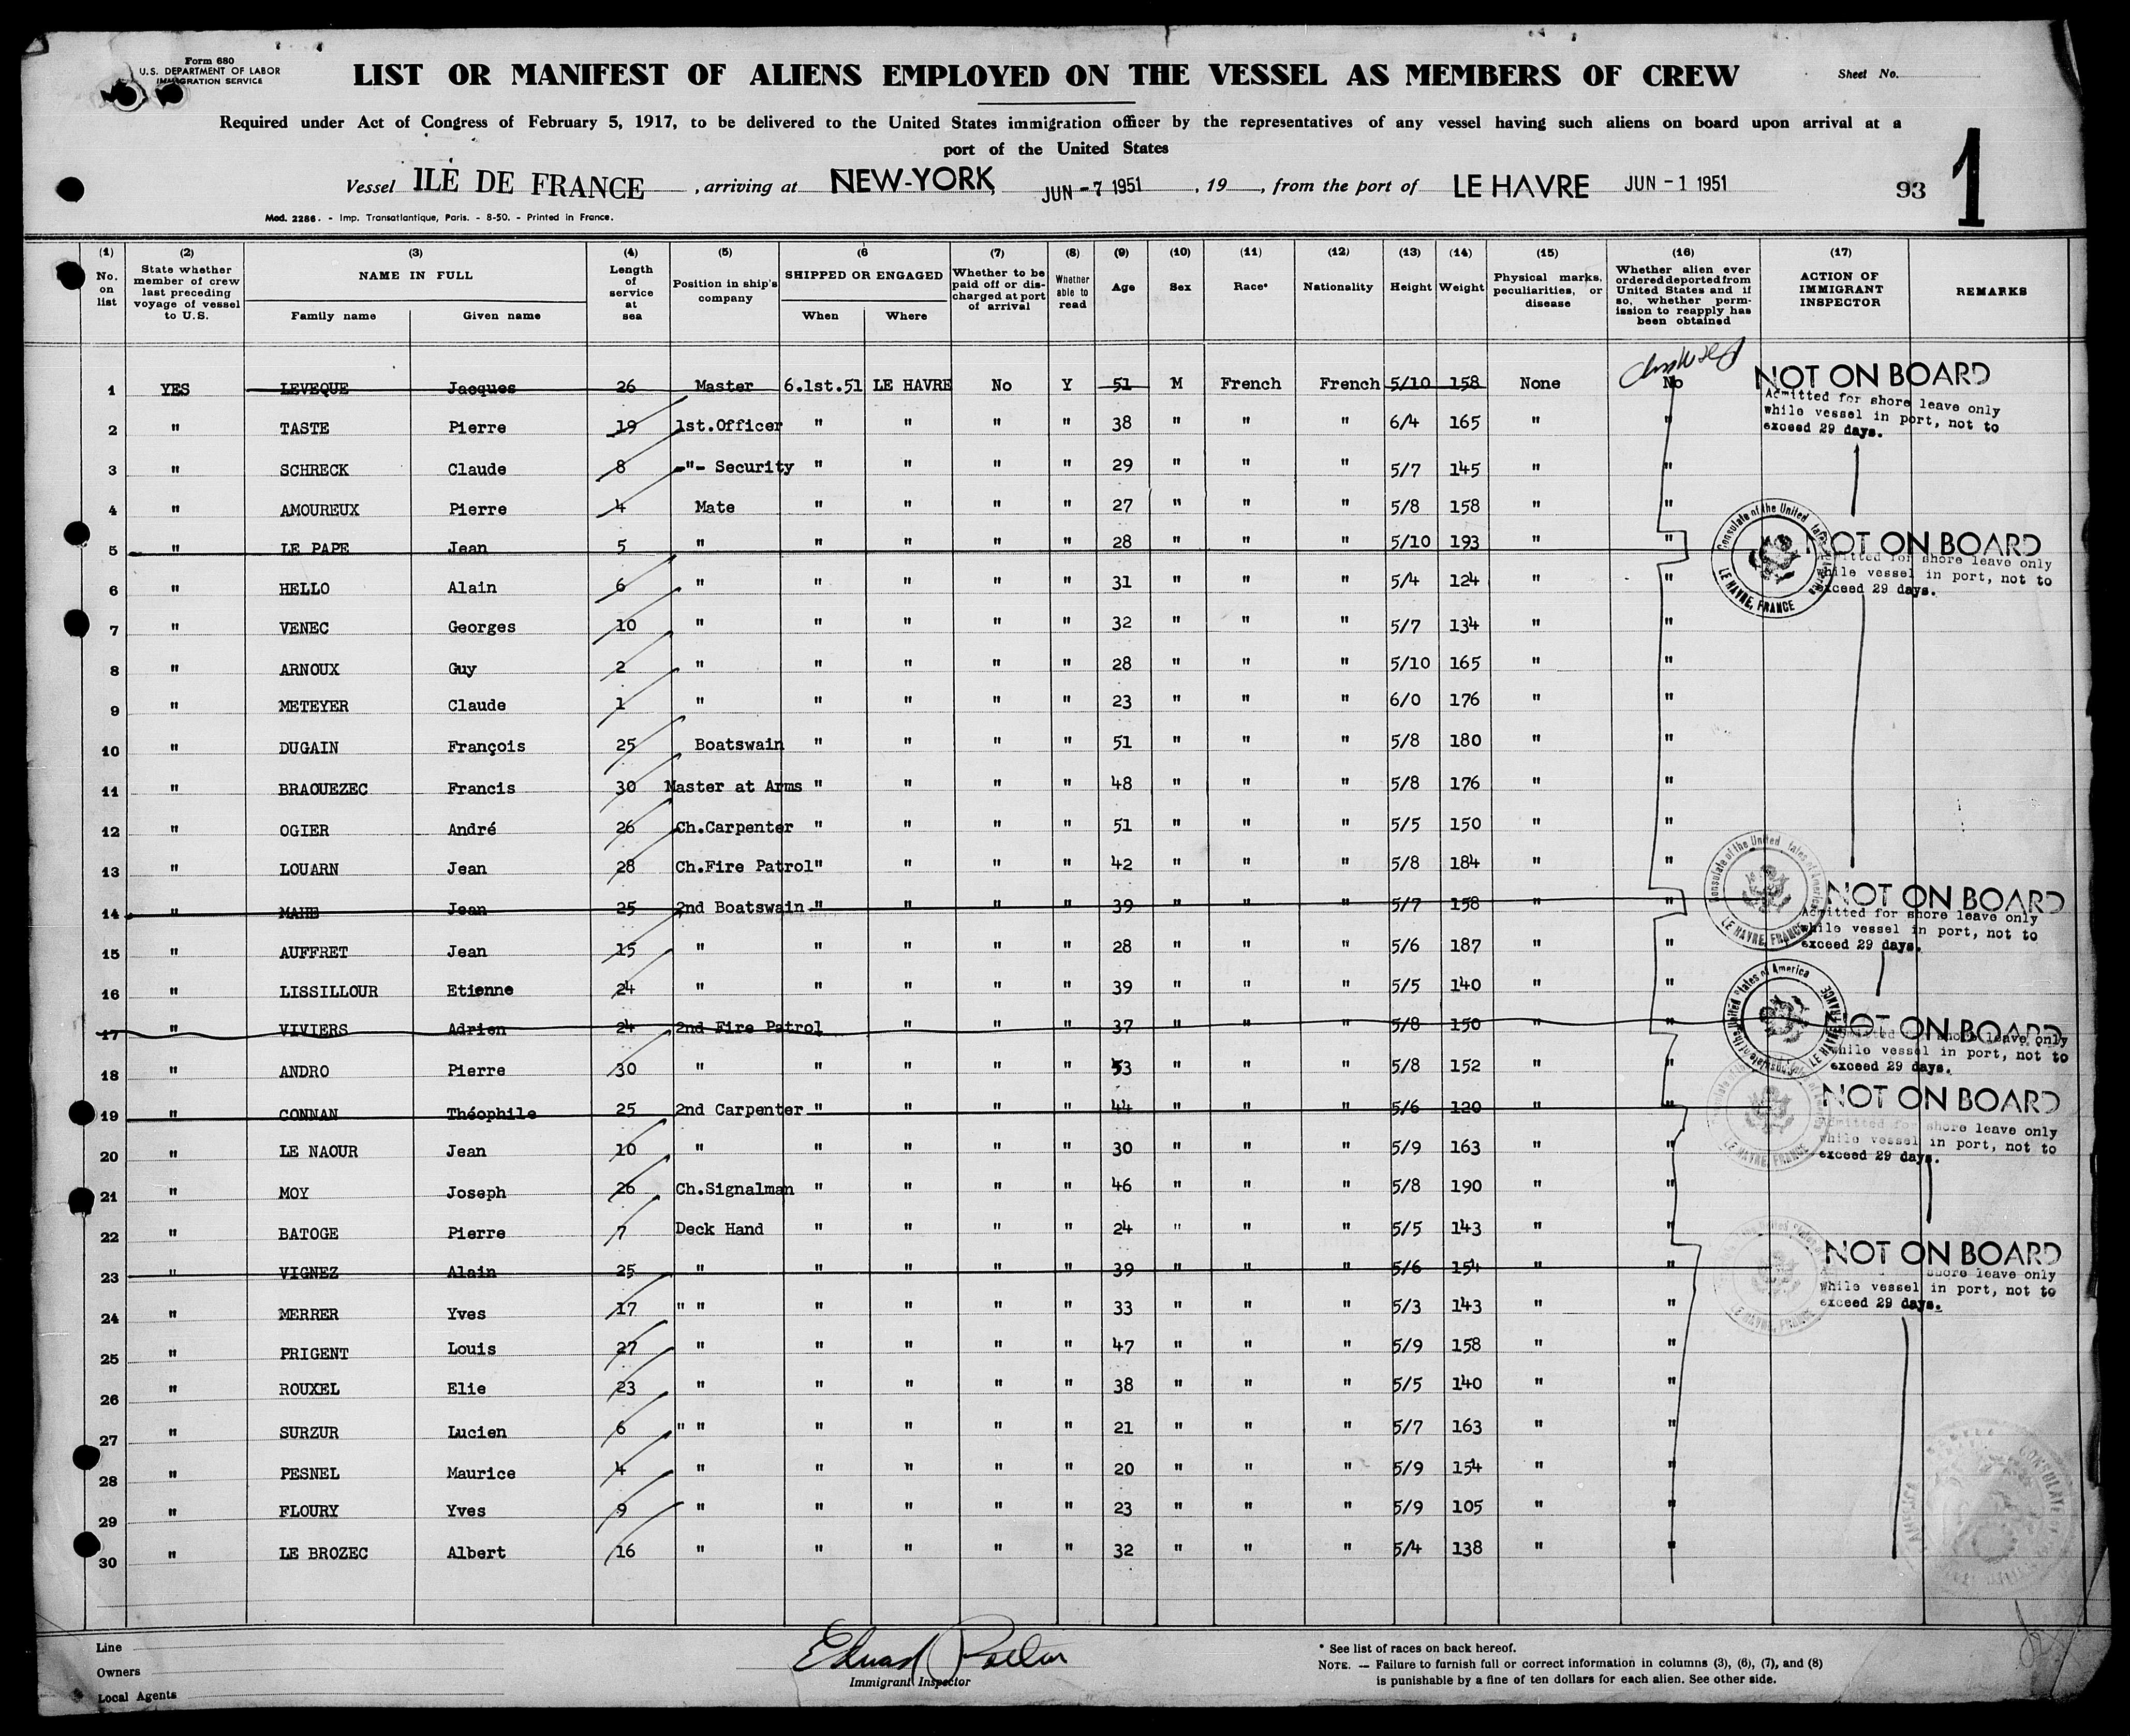 Form 680
U.S. DEPARTMENT OF LABOR
IMMIGRATION SERVICE
LIST OR MANIFEST OF ALIENS EMPLOYED ON THE VESSEL AS MEMBERS OF CREW
Sheet No.
Required under Act of Congress of February 5, 1917, to be delivered to the United States immigration officer by the representatives of any vessel having such aliens on board upon arrival at a
port of the United States
Vessel ILE DE FRANCE, arriving at NEW-YORK, JUN -7 1951, 19, from the port of LE HAVRE JUN -1 1951 93 1
Med. 2286. - Imp. Transatlantique, Paris. - 8-50. - Printed in France.
(1) No. on list
(2) State whether member of crew last preceding voyage of vessel to U.S.
(3) NAME IN FULL Family name Given name
(4) Length of service at sea
(5) Position in ship's company
(6 SHIPPED OR ENGAGED When Where
(7) Whether to be paid off or discharged at port of arrival
(8) Whether able to read
(9) Age
(10) Sex
(11) Race*
(12) Nationality
(13) Height
(14) Weight
(15) Physical marks, peculiarities, or disease
(16) Whether alien ever ordered deported from United States and if so, whether permission to reapply has been obtained
(17) ACTION OF IMMIGRANT INSPECTOR
REMARKS
1 YES LEVEQUE Jacques 26 Master 6.1st.51 LE HAVRE No Y 51 M French French 5/10 158 None No NOT ON BOARD
Admitted for shore leave only
while vessel in port, not to
exceed 29 days.
2 " TASTE Pierre 19 1st.Officer " " " " 38 " " " 6/4 165 " "
3 " SCHRECK Claude 8 -"- Security " " " " 29 " " " 5/7 145 " "
4 " AMOUREUX Pierre 4 Mate " " " " 27 " " " 5/8 158 " "
5 " LE PAPE Jean 5 " " " " " 28 " " " 5/10 193 " " NOT ON BOARD
Admitted for shore leave only
while vessel in port, not to
exceed 29 days.
Consulate of the United States of America
LE HAVRE, FRANCE
6 " HELLO Alain 6 " " " " " 31 " " " 5/4 124 " "
7 " VENEC Georges 10 " " " " " 32 " " " 5/7 134 " "
8 " ARNOUX Guy 2 " " " " " 28 " " " 5/10 165 " "
9 " METEYER Claude 1 " " " " " 23 " " " 6/0 176 " "
10 " DUGAIN François 25 Boatswain " " " " 51 " " " 5/8 180 " "
11 " BRAOUEZEC Francis 30 Master at Arms " " " " 48 " " " 5/8 176 " "
12 " OGIER André 26 Ch.Carpenter " " " " 51 " " " 5/5 150 " "
13 " LOUARN Jean 28 Ch.Fire Patrol " " " " 42 " " " 5/8 184 " "
14 " MAHE Jean 25 2nd Boatswain " " " " 39 " " " 5/7 158 " " NOT ON BOARD
Admitted for shore leave only
while vessel in port, not to
exceed 29 days.
Consulate of the United States of America
LE HAVRE, FRANCE
15 " AUFFRET Jean 15 " " " " " 28 " " " 5/6 187 " "
16 " LISSILLOUR Etienne 24 " " " " " 39 " " " 5/5 140 " "
17 " VIVIERS Adrien 24 2nd Fire Patrol " " " 37 " " " 5/8 150 " " NOT ON BOARD
Admitted for shore leave only
while vessel in port, not to
exceed 29 days.
Consulate of the United States of America
LE HAVRE FRANCE
18 " ANDRO Pierre 30 " " " " " 53 " " " 5/8 152 " "
19 " CONNAN Théophile 25 2nd Carpenter " " " " 44 " " " 5/6 120 " " NOT ON BOARD
Admitted for shore leave only
while vessel in port, not to
exceed 29 days.
LE HAVRE, FRANCE
20 " LE NAOUR Jean 10 " " " " " 30 " " " 5/9 163 " "
21 " MOY Joseph 26 Ch.Signalman " " " " 46 " " " 5/8 190 " "
22 " BATOGE Pierre 7 Deck Hand " " " " 24 " " " 5/5 143 " "
23 " VIGNEZ Alain 25 " " " " " 39 " " " 5/6 154 " " NOT ON BOARD
shore leave only
while vessel in port, not to
exceed 29 days.
LE HAVRE, FRANCE
24 " MERRER Yves 17 " " " " " " 33 " " " 5/3 143 " "
25 " PRIGENT Louis 27 " " " " " 47 " " " 5/9 158 " "
26 " ROUXEL Elie 23 " " " " " 38 " " " 5/5 140 " "
27 " SURZUR Lucien 6 " " " " " " 21 " " " 5/7 163 " "
28 " PESNEL Maurice 4 " " " " " 20 " " " 5/9 154 " "
29 " FLOURY Yves 9 " " " " " 23 " " " 5/9 105 " "
30 " LE BROZEC Albert 16 " " " " " 32 " " " 5/4 138 " "
CONSULATE
AMERICA
Line
Owners
Local Agents
Immigrant Inspector
* See list of races on back hereof.
NOTE. — Failure to furnish full or correct information in columns (3), (6), (7), and (8)
is punishable by a fine of ten dollars for each alien. See other side.